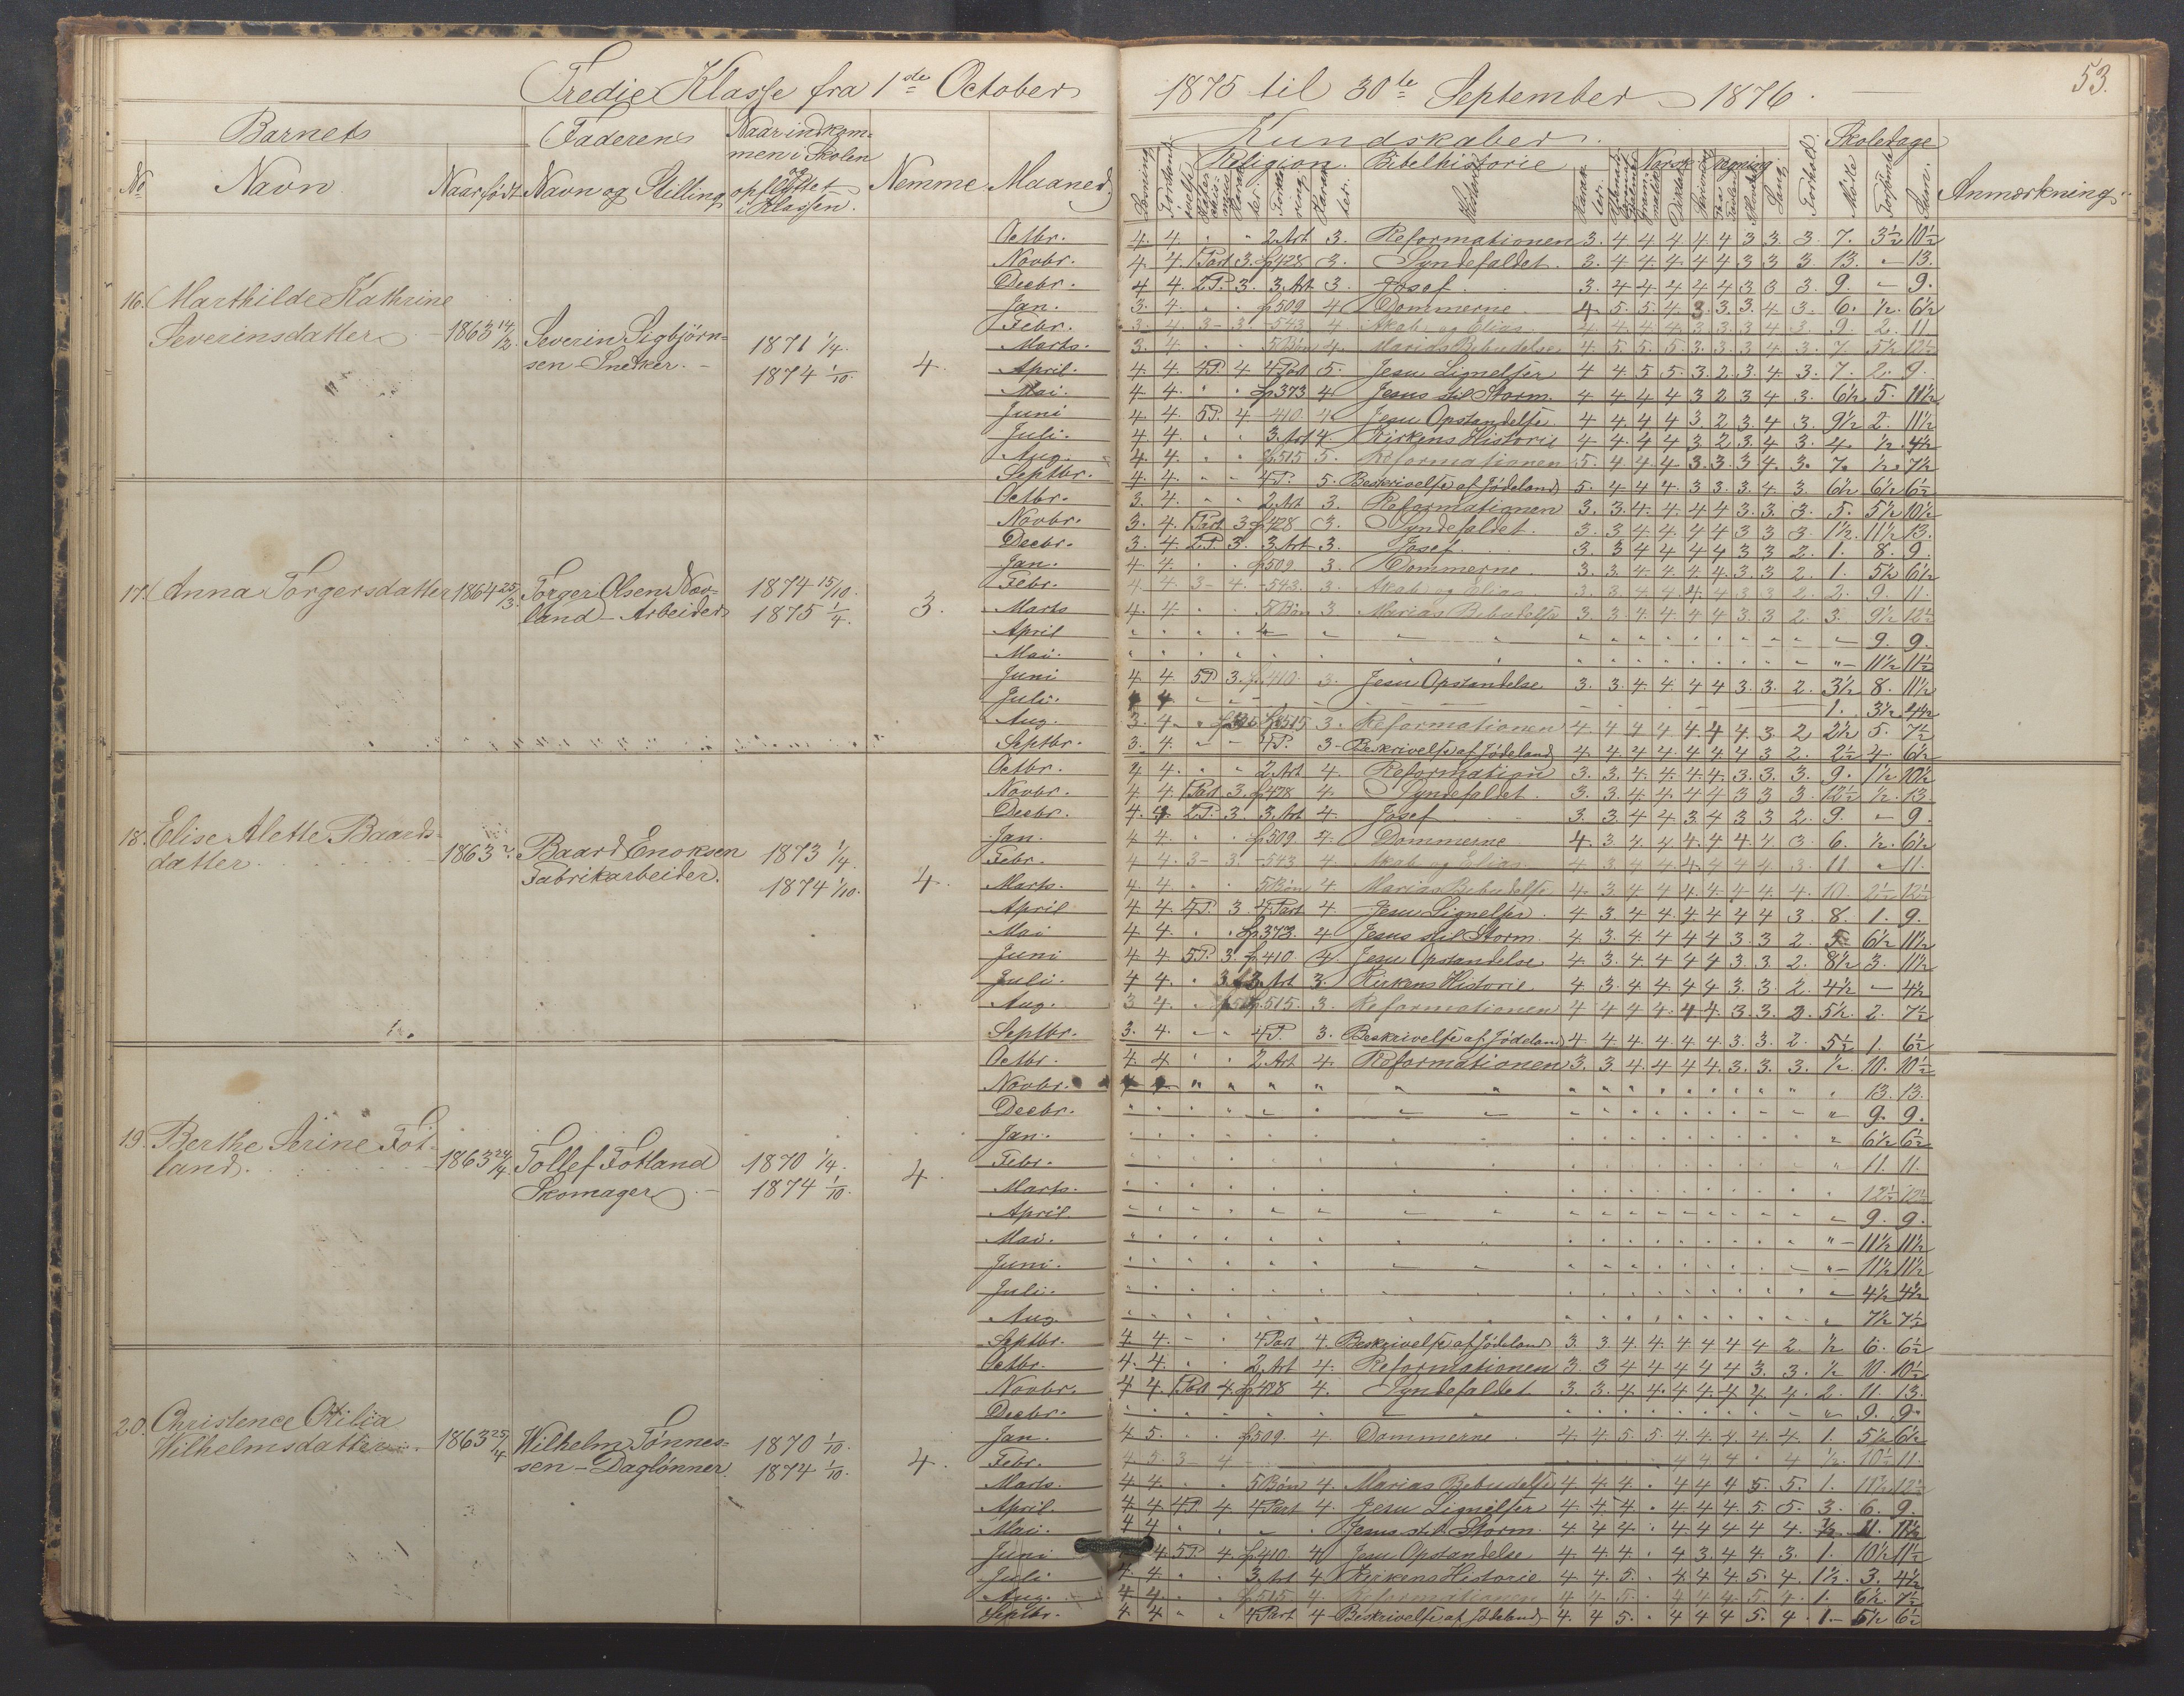 Tredie Klasse fra 1de October 1875 til 30te September 1876.
53.
Barnets Faderens Naar indkommen i Skolen og opflyttet i Klassen. Nemme Maaned.
No Navn Naar født Navn og Stilling
Kundskaber. Skoledage
Religion. Bibelhistorie Norsk Sang. Forhold. Møde Forsømte Sum. Anmærkning.
16. Marthilde Kathrine
Severinsdatter 1863 14/2. Severin Sigbjörn-
sen - Snedker. 1871 1/4.
1874 1/10. 4.
Octbr. 4. 4. " " 2 Art 3. Reformationen 3. 4 4 4 4 4 3 3. 3. 7. 3½ 10½
Novbr. 4. 4. 1 Part 3. Sp 428 3. Syndefaldet. 3. 4. 4. 4. 4 4 3 3 3 13. - 13.
Decbr. 4 4. 2 P. 3. 3. Art 3. Josef 3. 4 4 4 4 4 3 3 3. 9. - 9.
Jan. 3. 4. " " Sp 509 4 Dommerne 4. 5. 5. 4. 3. 3. 3. 4. 3. 6. ½. 6½
Febr. 3. 4 3- 3. -543. 4. Akab og Elias 4. 4. 4. 4. 3. 3. 3 4 3. 9. 2. 11
Marts. 3. 4 " " 5 Bön 4. Marias Bebudelse 4. 5. 5. 5. 3. 3. 3 4. 3. 7. 5½ 12½
April. 4. 4. 4 P. 4 4 Part 5. Jesu Lignelser 4 4. 5 5. 3. 2. 3. 4. 3. 7. 2. 9.
Mai. 4. 4. " " Sp 373 4 Jesus stil. Storm. 4 4. 4 4 3 2 3 4 3. 6½ 5. 11½
Juni 4 4. 5 P. 4. -410. 4. Jesu Opstandelse 4. 4. 4 4 3 2 3. 4 3. 9½ 2. 11½
Juli. 4. 4. " " 3. Art 4. Kirkens Historie 4 4. 4 4 3 2. 3. 4 3. 4. ½ 4½
Aug. 4. 4. " " Sp 515 5. Reformationen 5. 4 4. 4 3. 3. 3 4. 3. 7. ½. 7½
Septbr. 4. 4. " " 4 P. 5. Beskrivelse af Jødeland 5. 4 4. 4. 3 3. 3. 4 3. 6½ 6½ 6½
17. Anna Torgersdatter 1864 25/3. Torger Olsen
land - Arbeider 1874 15/10.
1875 1/4. 3.
Octbr. 3. 4. " " 2. Art 3. Reformationen 3. 3. 4. 4. 4 4 3. 3. 3. 5. 5½ 10½
Novbr. 3. 4. 1 Part 3 Sp 428 3. Syndefaldet. 3. 3 4 4. 4 4 3 3 3. 1½. 11½ 13.
Decbr. 3. 4. 2 P. 3. 3 Art 3. Josef 3. 3 4 4. 4 4 3 3 2. 1. 8. 9.
Jan. 4. 4. " " Sp 509 3. Dommerne 3. 3. 4. 4. 4. 4. 3. 3 2. 1. 5½ 6½
Febr. 4 4. 3- 4. -543. 3. Akab og Elias 3. 3 4 4 4 4 3 3 2. 2. 9. 11.
Marts 4. 4. " " 5 Bön 3 Marias Bebudelse 3. 3. 4. 4. 4 4 3 3 2. 3. 9½ 12½
April " " " " " " " " " " " " " " " " " - 9. 9.
Mai. " " " " " " " " " " " " " " " " " - 11½ 11½
Juni 4. 4. 5 P. 3. 410. 3. Jesu Opstandelse 3. 3. 4. 4. 4 4 3. 3. 2. 3½ 8. 11½
Juli. 1. 3½ 4½
Aug. 3. 4. " 515 3. Reformationen 4. 4 4 4 4. 4 4. 3. 2 2½ 5. 7½
Septbr. 3. 4. " " 4 P. 3- Beskrivelse af Jødeland 4. 4. 4 4. 4. 4 4 3 2. 2½ 4. 6½
18. Elise Alette Baards-
datter 1863 ?. Baard Enoksen
Fabrikarbeider. 1873 1/4.
1874 1/10. 4.
Octbr. 4 4. " " 2. Art 4. Reformation 3. 3. 4. 4. 4. 4. 3. 3. 3. 9. 1½ 10½
Novbr. 4 4. 1 Part 3. Sp 428 4. Syndefaldet. 3. 3. 4. 4. 4 4 3 3 3. 12½ ½. 13
Decbr. 4. 4 2 P. 3. 3. Art 4. Josef 3. 3 4 4 3 4 3 3 2. 9. - 9.
Jan. 4. 4. " " Sp 509 4. Dommerne 4. 3. 4 4 4. 4 4 4 3 6. ½. 6½
Febr. 4 4. 3- 3. -543 4. Akab og Elias 4 3 4 4 4. 4 4 4 3. 11. " 11.
Marts. 4. 4. " " 5 Bön 4. Marias Bebudelse 4. 3 4 4 4. 4. 4 4. 4. 10. 2½ 12½
April 4 4. 4 P. 3 4 Part 4. Jesu Lignelser 4 3. 4 4. 4 4 4 4 3. 8. 1. 9.
Mai 4 4. " " Sp 373. 4 Jesus stil Storm. 4. 3. 4. 4 4 4 3. 3 2. 5 6½ 11½
Juni 4 4. 5 P. 3. Sp 410. 4 Jesu Opstandelse 4. 3. 4. 4 4 4 3. 3. 2. 8½ 3. 11½
Juli. 4 4. " 3. Art 3. Kirkens Historie 4 3. 4. 4. 4 4 3 3 2. 4½ - 4½
Aug. 3 4. " 515. 3. Reformationen 4 4 4 4. 4 4. 3. 3. 2. 5½. 2. 7½
Septbr. 3. 4. " " 4 P. 3. Beskrivelse af Jødeland 4. 4. 4. 4. 4. 4 3. 3. 2. 5½ 1. 6½
19. Berthe Serine Fot-
land. 1863 24/4. Tollef Fotland
Skomager 1870 1/4.
1874 1/10. 4.
Octbr. 4 4. " " 2 Art 4. Reformationen 3. 3. 4. 4. 4 4. 3. 3. 3. ½. 10. 10½
Novbr. " " " " " " " " " " " " " " " " 13. 13.
Decbr. " " " " " " " " " " " " " " " " 9. 9.
Jan. " " " " " " " " " " " " " " " " 6½ 6½
Febr. " " " " " " " " " " " " " " " " 11. 11.
Marts. " " " " " " " " " " " " " " " " 12½ 12½
April. " " " " " " " " " " " " " " " " 9. 9.
Mai. " " " " " " " " " " " " " " " " 11½ 11½
Juni. " " " " " " " " " " " " " " " " 11½ 11½
Juli. " " " " " " " " " " " " " " " " 4½ 4½
Aug. " " " " " " " " " " " " " " " " 7½ 7½
Septbr. 4 4. - " 4 Part 4. Beskrivelse af Jødeland 3. 3 4. 4. 4 4 4 4 2. ½ 6. 6½
20. Christence Otilia
Wilhelmsdatter 1863 25/4. Wilhelm Tönnes-
sen - Daglönner. 1870 1/10.
1874 1/10. 4.
Octbr. 4. 4. " " 2. Art 4. Reformationen 3. 3 4 4 4 4 4 3. 3. ½ 10. 10½
Novbr. 4 4. 1 Part 4. Sp 428 4. Syndefaldet 3. 3. 4. 4. 4 4. 4. 4. 4. 2. 11. 13.
Decbr. " " " " " " " " " " " " " " " " 9. 9.
Jan. 4 5. " " Sp 509. 4. Dommerne 4. 4 5 5. 4. 4. 4. 4. 4. 1. 5½ 6½
Febr. 4 5. 3- 4 - 4 4 4 " 4 ½. 10½ 11.
Marts. 4 4. " " 5 Bön 4. Marias Bebudelse 4 4 4. " 4 4 4 5. 5. 1. 11½ 12½
April. 4 4 4 P. 4. 4 Part 4. Jesu Lignelser 4. 4. 4. " 4 4 4. 5. 5. 3. 6. 9.
Mai. 4 4 " " - " Jesus stil. Storm. 4 4 4. " 4. 4 4 4 4. ½. 11. 11½
Juni 4. 5 P. 4. Sp 410. 4 Jesu Opstandelse 4. 4. 4. " 4 3. 4 4. 3. 1. 10½ 11½
Juli 4. 4. " " 3. Art 4 Kirkens Historie 4 4. 5. " 4. 4 4 5. 4. 1½. 3. 4½
Aug. 4 4. " " Sp 515 4. Reformationen 4 4. 5. " 4 4 4. 5. 4. 1. 6½. 7½
Septbr. 4. 4 " " 4 Part 4- Beskrivelse af Jødeland 4. 4 5. " 4 4 4 5. 4. 1.- 5½ 6½